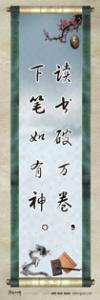 读书破万卷，
下笔如有神。